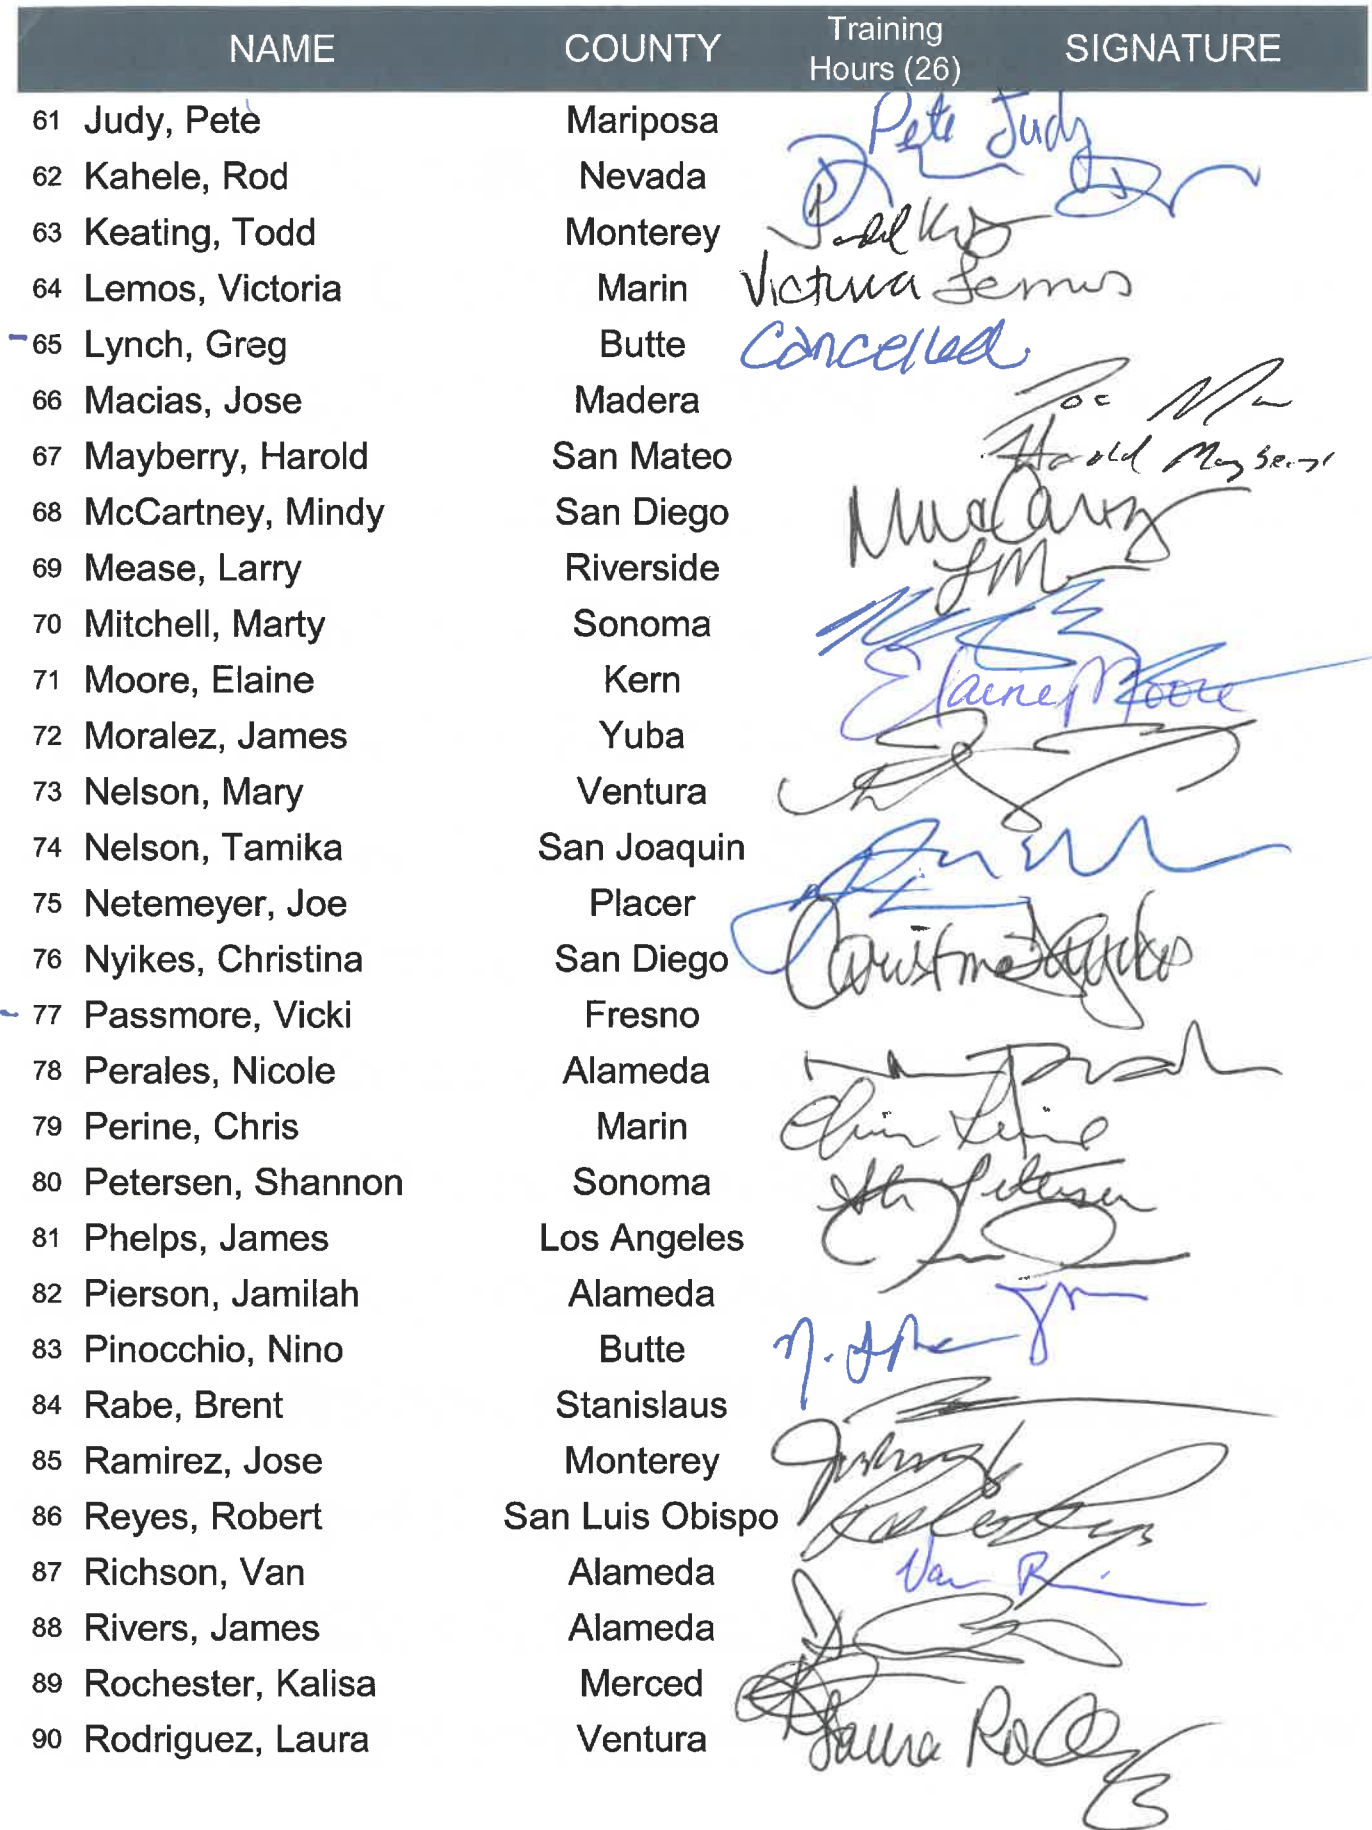 NAME COUNTY Training Hours (26) SIGNATURE
61 Judy, Pete Mariposa Pete Judy
62 Kahele, Rod Nevada
63 Keating, Todd Monterey
64 Lemos, Victoria Marin Victoria Lemos
65 Lynch, Greg Butte Cancelled
66 Macias, Jose Madera
67 Mayberry, Harold San Mateo Harold Mayberry
68 McCartney, Mindy San Diego
69 Mease, Larry Riverside LM
70 Mitchell, Marty Sonoma
71 Moore, Elaine Kern Elaine Moore
72 Moralez, James Yuba
73 Nelson, Mary Ventura
74 Nelson, Tamika San Joaquin
75 Netemeyer, Joe Placer
76 Nyikes, Christina San Diego Christina Nyikes
77 Passmore, Vicki Fresno
78 Perales, Nicole Alameda
79 Perine, Chris Marin Chris Perine
80 Petersen, Shannon Sonoma Sh Petersen
81 Phelps, James Los Angeles
82 Pierson, Jamilah Alameda
83 Pinocchio, Nino Butte
84 Rabe, Brent Stanislaus
85 Ramirez, Jose Monterey
86 Reyes, Robert San Luis Obispo
87 Richson, Van Alameda Van R
88 Rivers, James Alameda
89 Rochester, Kalisa Merced
90 Rodriguez, Laura Ventura Laura